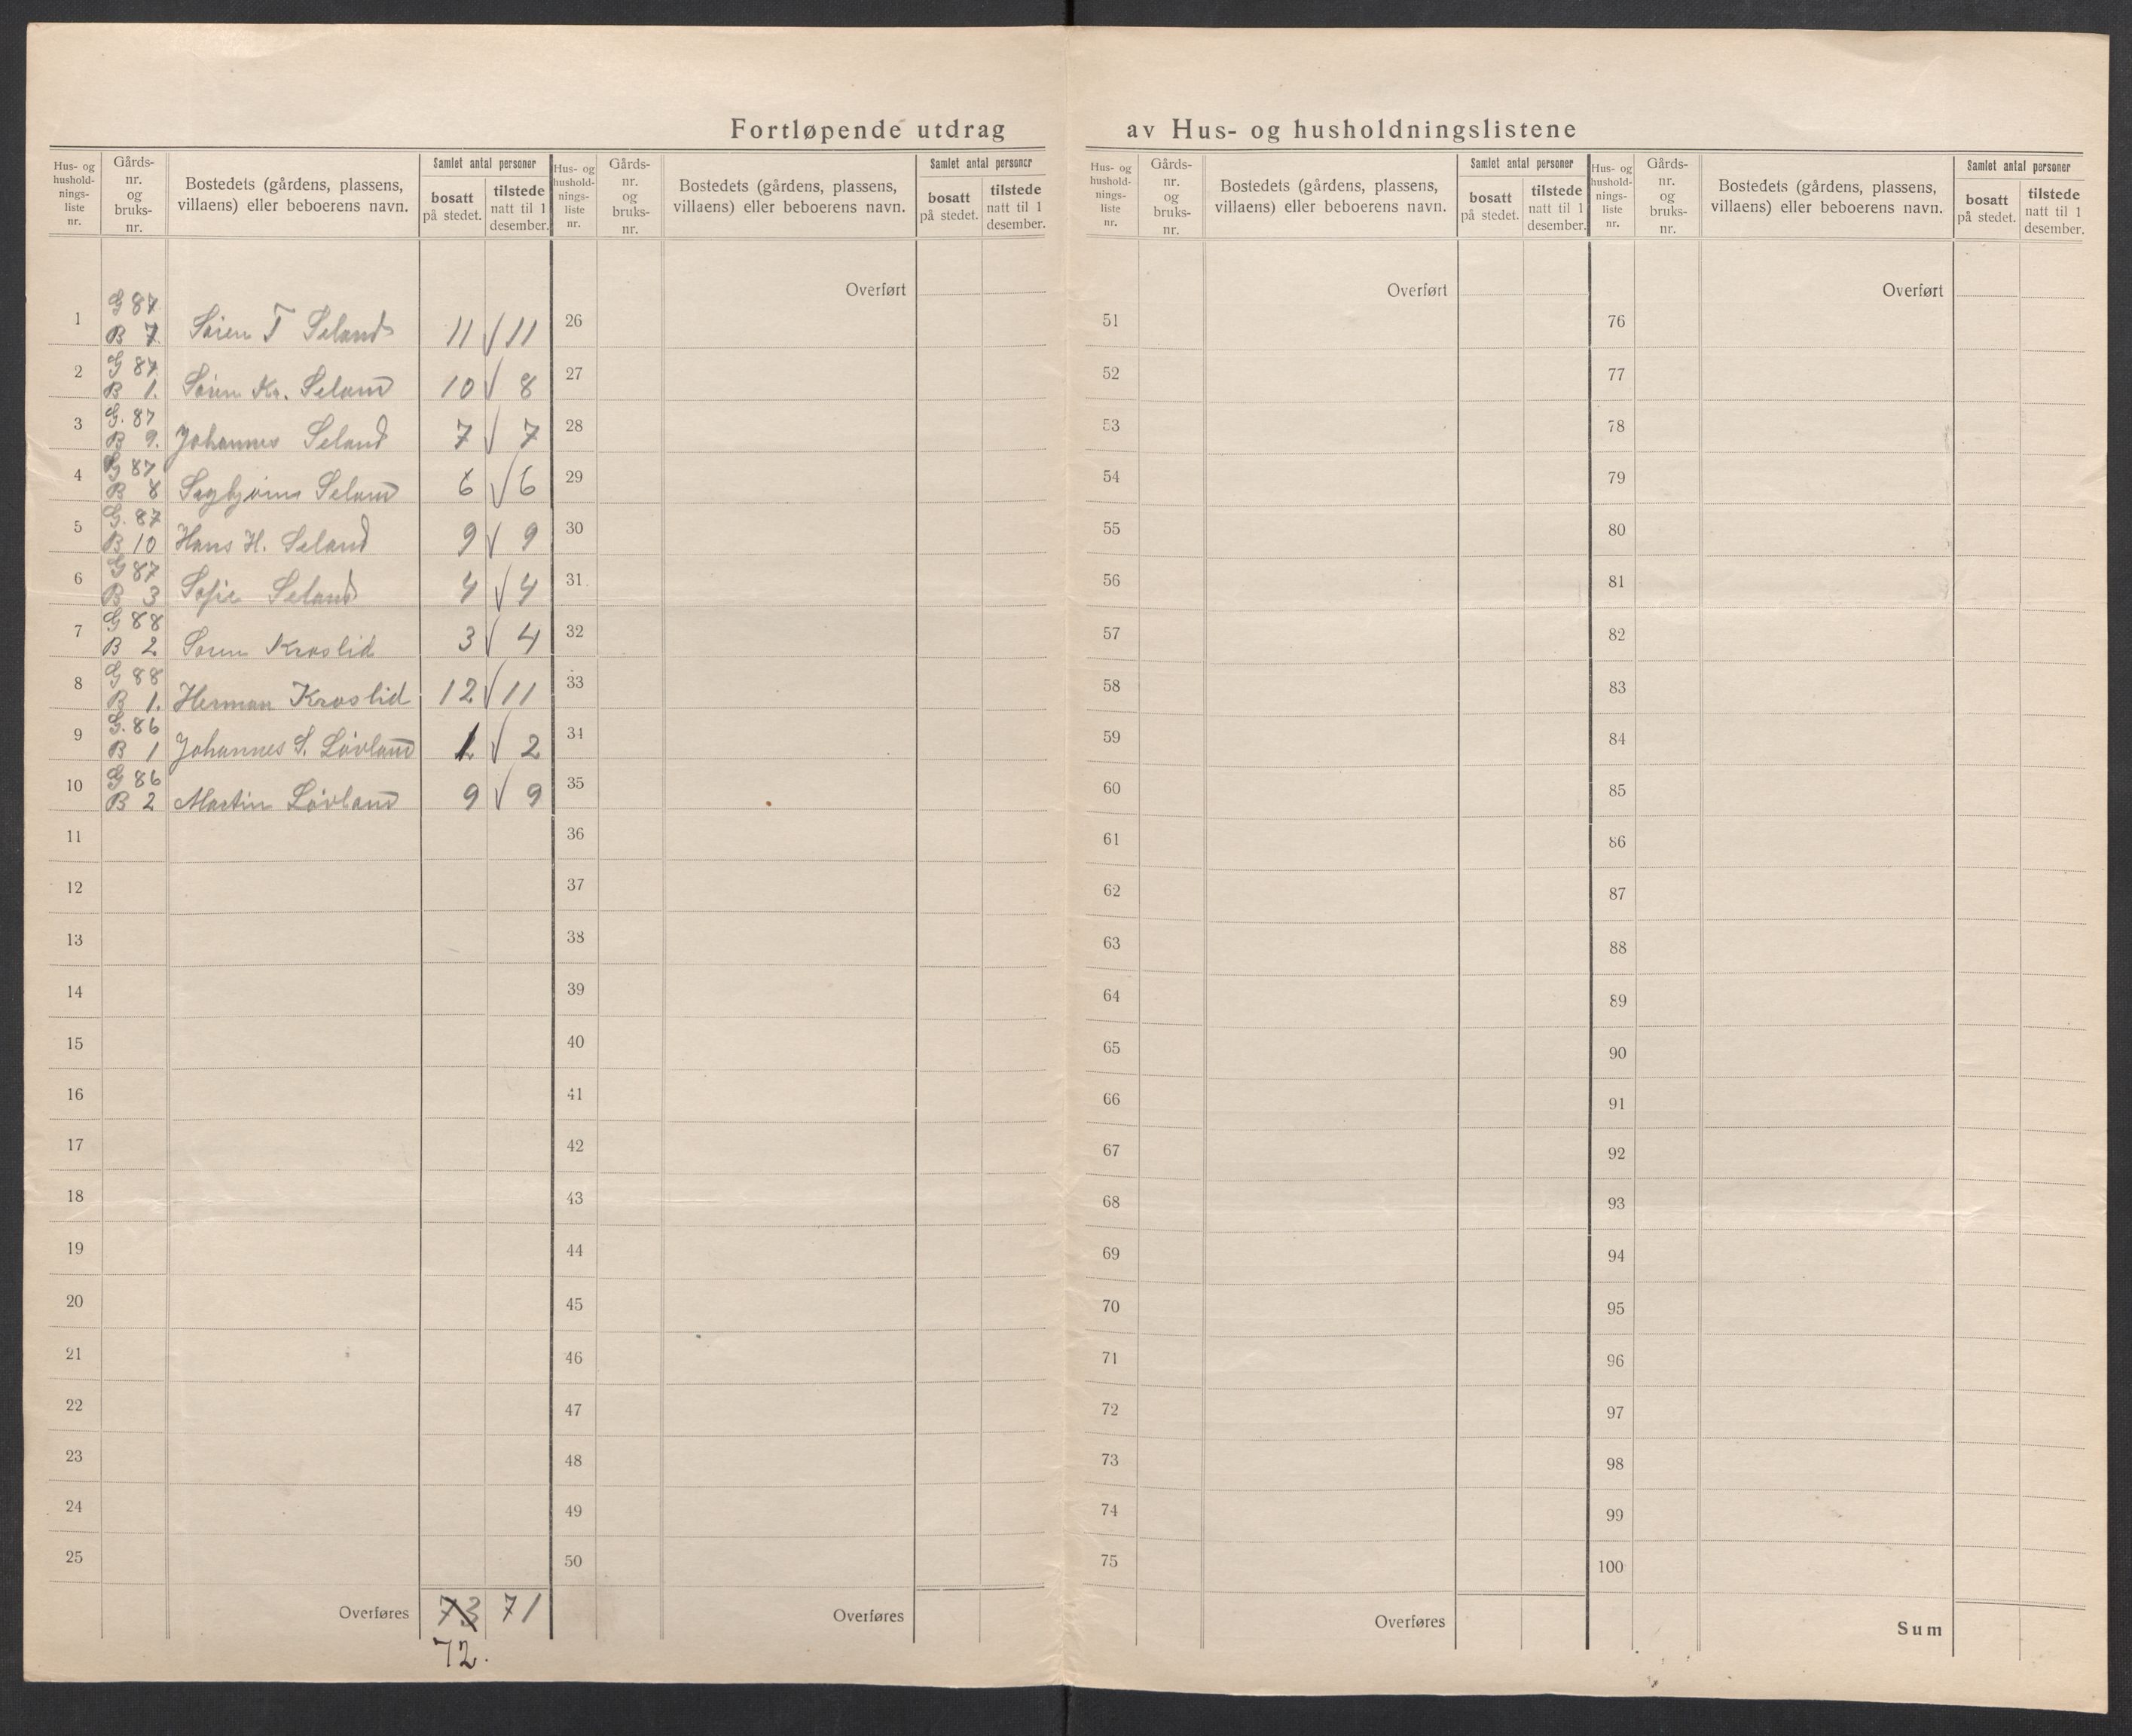 Fortløpende utdrag av Hus- og husholdningslistene
Hus- og hushold-nings-liste nr. Gårds-nr. og bruks-nr. Bostedets (gårdens, plassens, villaens) eller beboerens navn. Samlet antal personer bosatt på stedet. tilstede natt til 1 desember.
Hus- og hushold-nings-liste nr. Gårds-nr. og bruks-nr. Bostedets (gårdens, plassens, villaens) eller beboerens navn. Samlet antal personer bosatt på stedet. tilstede natt til 1 desember.
Hus- og hushold-nings-liste nr. Gårds-nr. og bruks-nr. Bostedets (gårdens, plassens, villaens) eller beboerens navn. Samlet antal personer bosatt på stedet. tilstede natt til 1 desember.
Hus- og hushold-nings-liste nr. Gårds-nr. og bruks-nr. Bostedets (gårdens, plassens, villaens) eller beboerens navn. Samlet antal personer bosatt på stedet. tilstede natt til 1 desember.
1 G 87 B 7. Søren T Seland 11 √ 11
2 G 87 B 1. Søren Kr. Seland 10 √ 8
3 G. 87 B 9. Johannes Seland 7 √ 7
4 G 87 B 8 Seland 6 √ 6
5 G. 87 B 10 Hans H. Seland 9 √ 9
6 G 87 B 3 Sofie Seland 4 √ 4
7 G 88 B 2 Søren Kroslid 3 √ 4
8 G 88 B 1. Herman Kroslid 12 √ 11
9 G. 86 B 1 Johannes S. Løvland 1 √ 2
10 G 86 B 2 Martin Løvland 9 √ 9
11
12
13
14
15
16
17
18
19
20
21
22
23
24
25
Overføres 73 71
72.
Overført
26
27
28
29
30
31
32
33
34
35
36
37
38
39
40
41
42
43
44
45
46
47
48
49
50
Overføres
Overført
51
52
53
54
55
56
57
58
59
60
61
62
63
64
65
66
67
68
69
70
71
72
73
74
75
Overføres
Overført
76
77
78
79
80
81
82
83
84
85
86
87
88
89
90
91
92
93
94
95
96
97
98
99
100
Sum